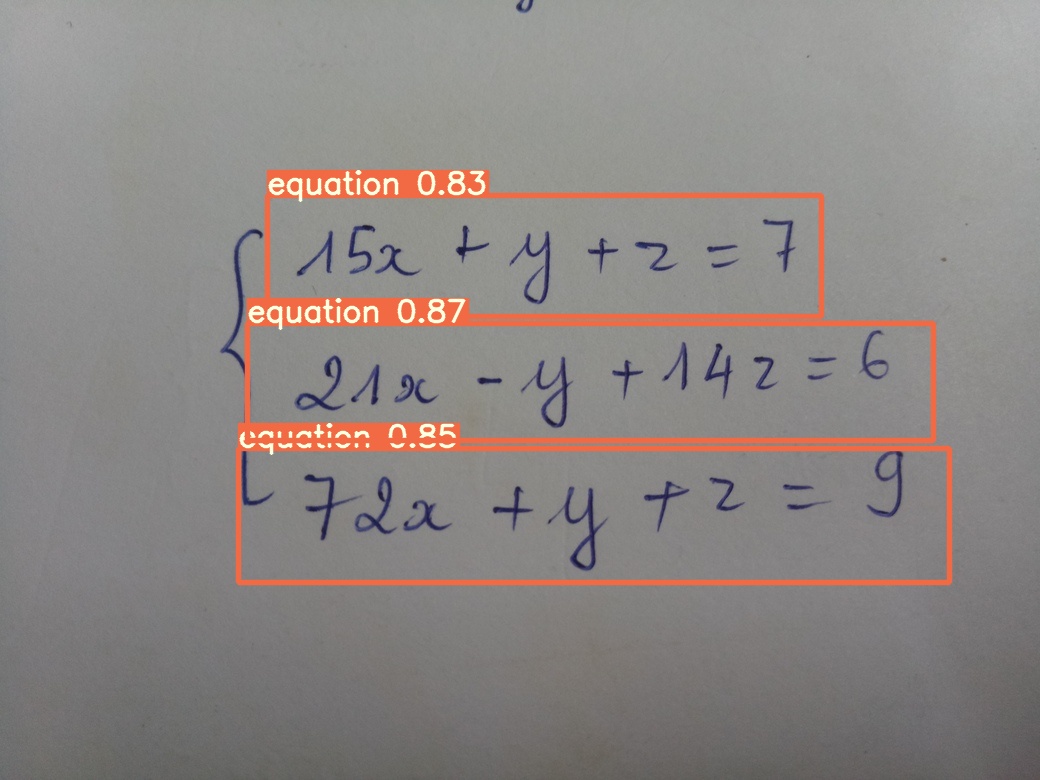 equation 0.83
15x + y + z = 7
equation 0.87
21x - y + 14z = 6
equation 0.85
72x + y + z = 9